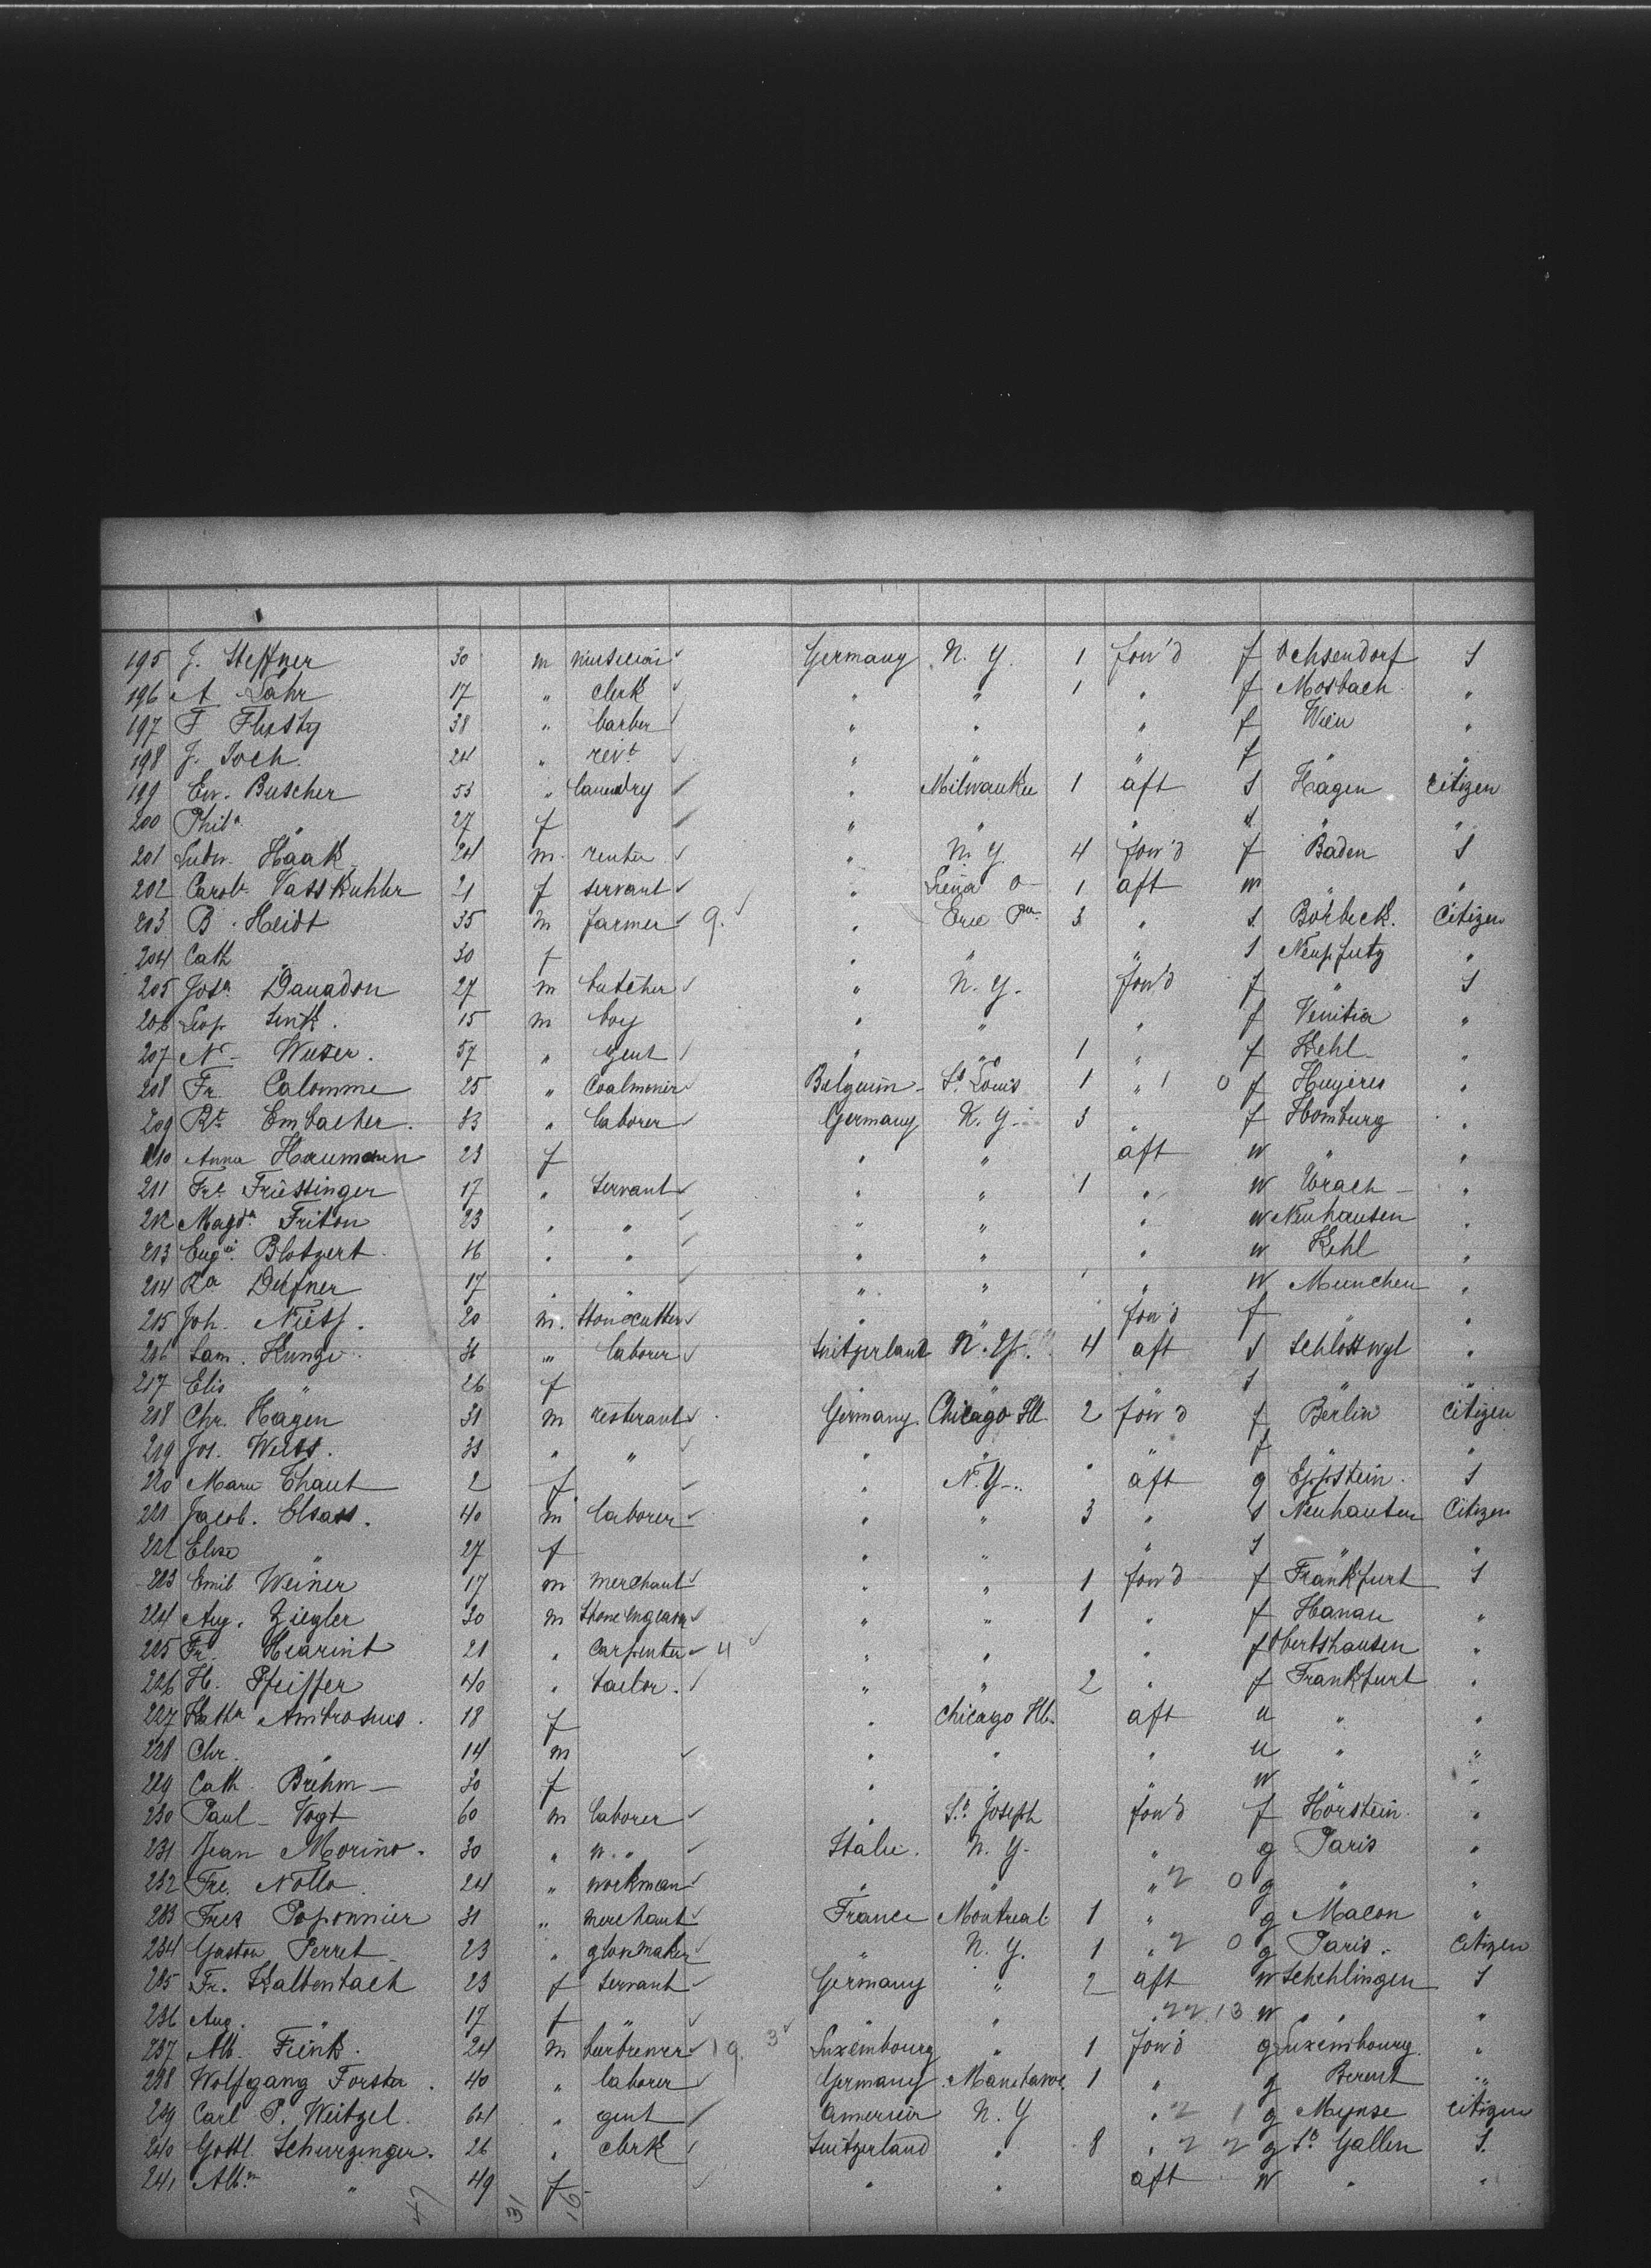 195 J. Steffner 30 m musician Germany N. Y. 1 fow'd f Ochsendorf S
196 A Lahr 17 " clerk " " 1 " f Mosbach "
197 F 38 " barber " " " f Wien "
198 J. Joch. 24 " " " " f " "
199 Ew. Buscher 53 " laundry " Milwaukee 1 aft S Hagen Citizen
200 Phil.a " 27 f " " " S " "
201 Ludw. Haak 24 m. renter " N. Y. 4 fow'd f Baden S
202 Carol. Vasskuhler 21 f servant " O 1 aft m " "
203 B. Heidt 35 m farmer 9. " Erie Pa. 3 " S Borbeck. Citizen
204 Cath " 30 f " " " S Neupfutz "
205 Jos.a Danadon 27 m butcher " N. Y. fow'd f " S
206 Leop Senk. 15 m boy " " " f Venitia "
207 N - Weser. 57 " gent " " 1 " f Kehl "
208 Fr. Calomme 25 " Coalmonier Belguim St. Louis 1 " 1 0 f "
209 Rt. Embacher. 33 " laborer Germany N. Y. 3 " f Homburg "
210 Anna Haumann 23 f " " aft W " "
211 Frd. Friessinger 17 " Servant " " 1 " W Urach "
212 Magd.a Friton 23 " " " " " W Neuhausen "
213 Blotzert 16 " " " " " W Kehl "
214 Ra Delfner 17 " " " " " W Munchen "
215 Joh. Niess. 20 m. Stonecutter " " fow'd f " "
216 Sam. Kunze 36 " laborer Suitzerland N. Y. 4 aft S Schlosswyl "
217 Elis " 26 f " " S " "
218 Chr. Hagen 31 m resterant Germany Chicago Ill 2 fow'd f Berlin Citizen
219 Jos. Weiss. 33 " " " " " f " "
220 Marie Thaut 2 f " N. Y. " aft g Eppstein. S
221 Jacob. Elsass. 40 m laborer " " 3 " S Neuhausen Citizen
222 Elise " 27 f " " " S " "
223 Emil Weiner 17 m merchant " " 1 fow'd f Frankfurt S
224 Aug. Ziegler 30 m " " 1 " f Hanau "
225 Fr. Hearint 21 " Carpenter 4 " " " f Obertshausen "
226 H. Pfeiffer 40 " tailor. " " 2 " f Frankfurt "
227 Katha Ambrosius. 18 f " Chicago Ill. aft u " "
228 Chr. " 14 m " " " u " "
229 Cath. Brehm 30 f " " " W " "
230 Paul Vogt 60 m laborer " St. Joseph fow'd f Horstein. "
231 Jean Morino. 30 " " " Italie. N. Y. " g Paris "
232 Fre. Nollo. 24 " workman " " " 2 0 g " "
233 Poponnier 31 " merchant France Montreal 1 " g Macon "
234 Gaston Perret 23 " glovmaker " N. Y. 1 " 2 0 g Paris. Citizen
235 Fr. Kaltenbach 23 f servant Germany " 2 aft W Schehlingen S
236 Aug. " 17 f " " " " 22 13 W " "
237 Alb. Fink. 24 m beerbrewer 19. 3 Luxembourg " 1 fow'd g Luxembourg. "
238 Wolfgang Forster. 40 " laborer Germany 1 " g "
239 Carl P. Weitzel. 64 " gent N. Y " 2 1 g Citizen
240 Gottl. Schurzinger. 26 " clerk Suitzerland " 8 " 2 2 g St. Gallen S.
241 " 49 f " " aft W " "
47 31 16